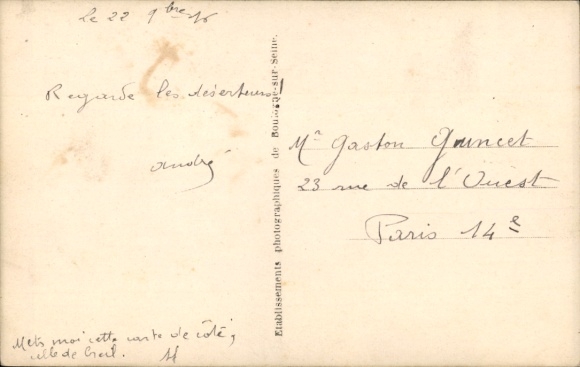 le 22 9bre 16
Regarde les déserteurs!
André
Mets moi cette carte de côté,
celle de Creil.
Etablissements photographiques de Boulogne-sur-Seine.
Mr Gaston
23 rue de l'Ouest
Paris 14e